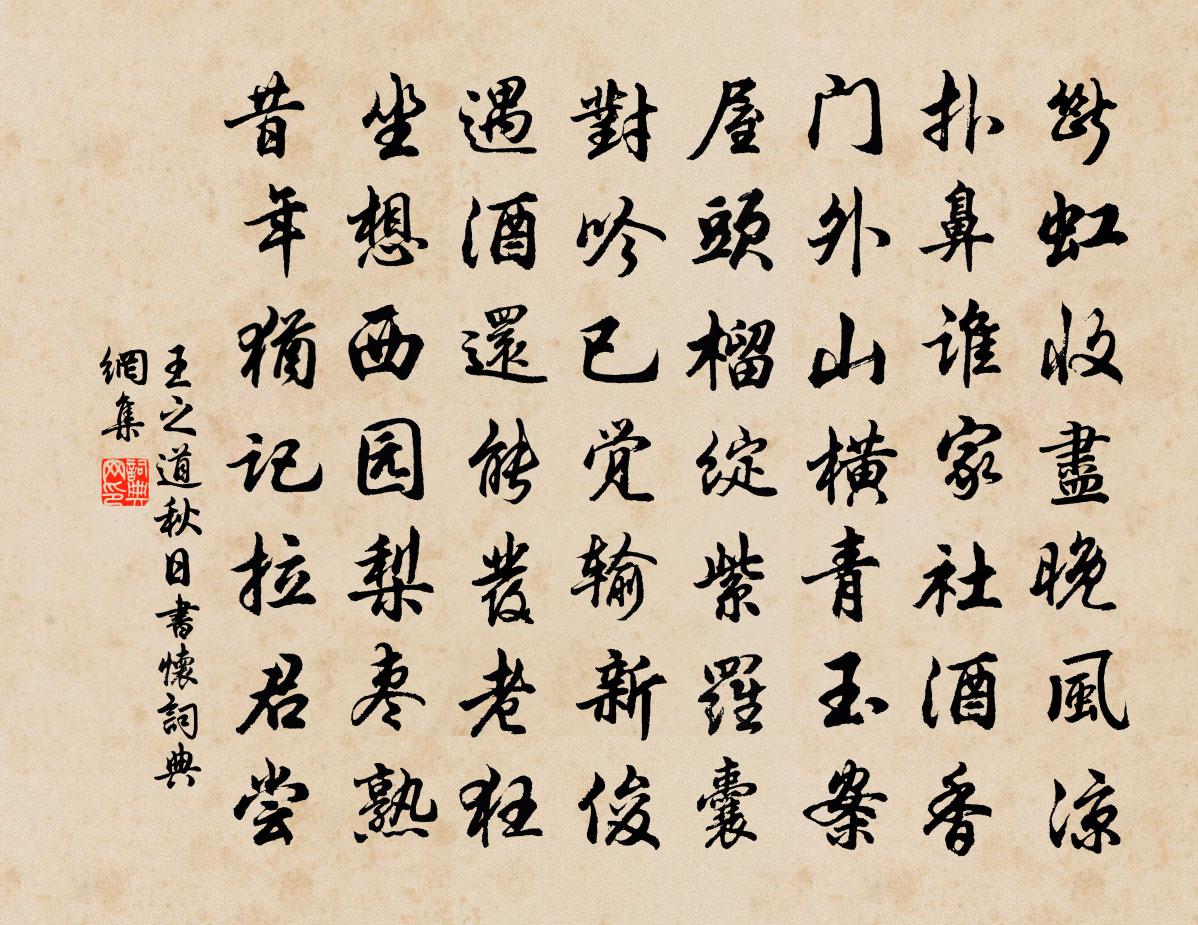 斷虹收盡晚风凉
扑鼻谁家社酒香
门外山橫青玉案
屋頭榴綻紫羅囊
對吟已觉输新俊
遇酒還能發老狂
坐想西园梨枣熟
昔年猶记拉君尝
王之道秋日書懷詞典
網集
詞典网印